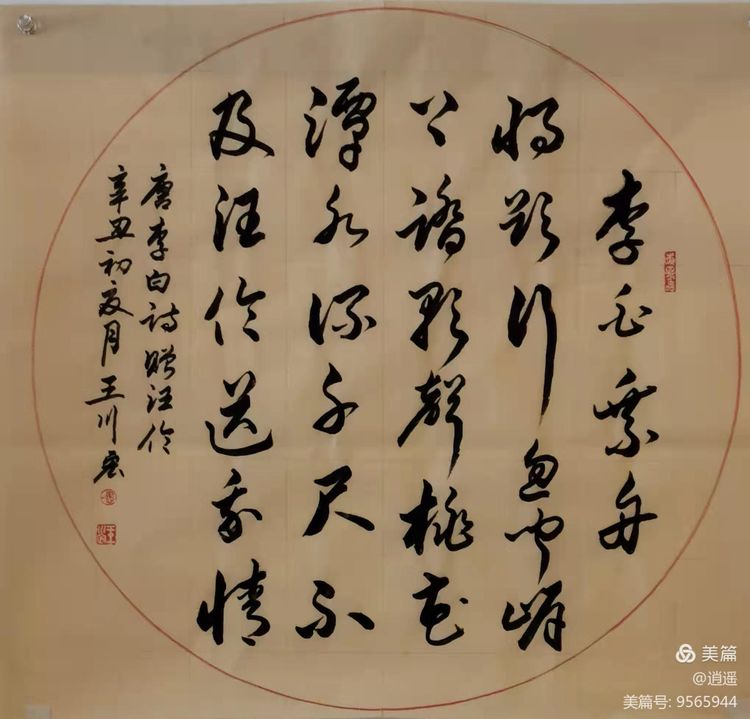 李白乘舟
將欲行忽聞岸
上踏歌聲桃花
潭水深千尺不
及汪倫送我情
唐李白詩贈汪倫
辛丑初夏月王川書
美篇
@逍遥
美篇号: 9565944